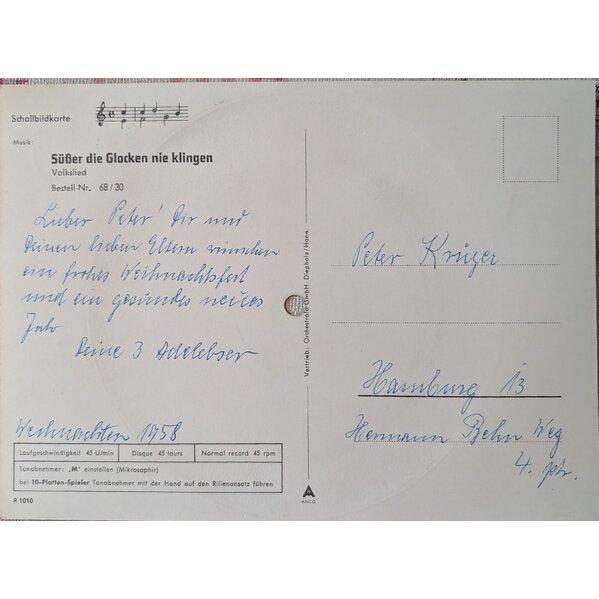 Schallbildkarte
Musik:
Süßer die Glocken nie klingen
Volkslied
Bestell-Nr. 68/30
Lieber Peter! Dir und
Deinen lieben Eltern wünschen
ein frohes Weihnachtsfest
und ein gesundes neues
Jahr
Deine 3 Adelebser
Weihnachten 1958
Laufgeschwindigkeit 45 U/min
Disque 45 tours
Normal record 45 rpm
Tonabnehmer: „M" einstellen (Mikrosaphir)
bei 10-Platten-Spieler Tonabnehmer mit der Hand auf den Rillenansatz führen
R 1010
Vertrieb: Orchestrola GmbH. Diepholz Hann.
ANCO
Peter Krüger
Hamburg 13
Hermann Behn Weg
4. ptr.